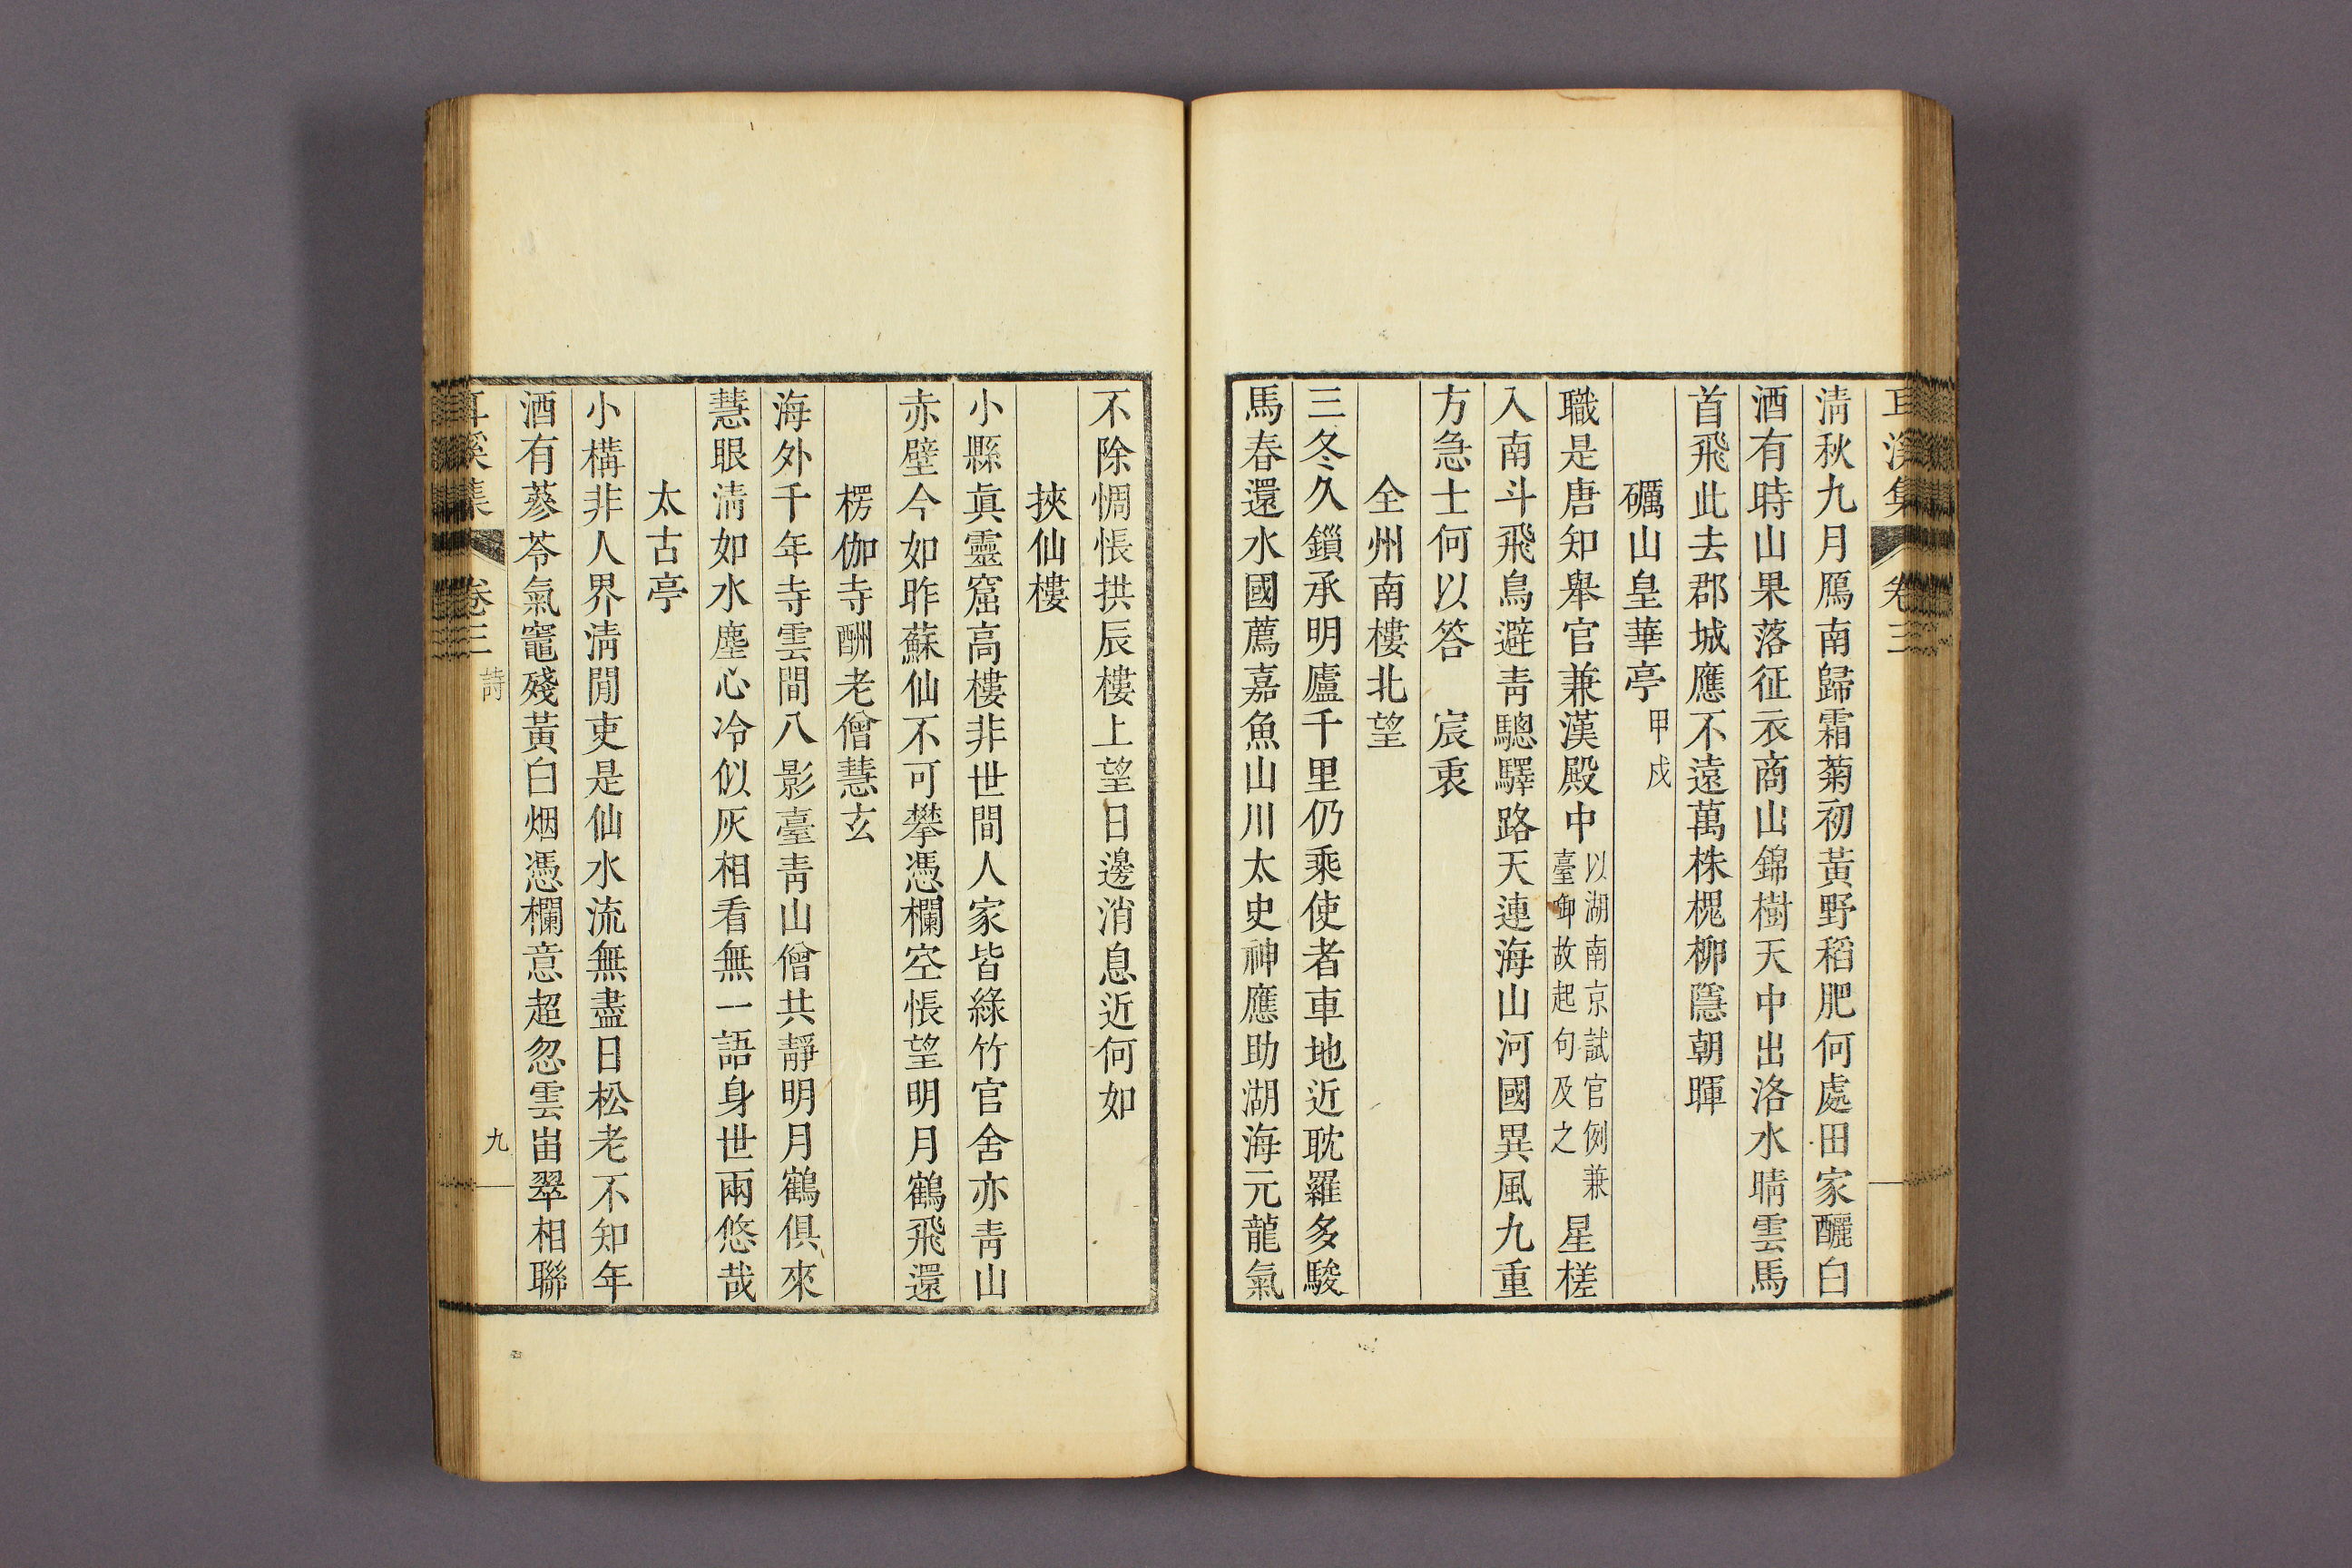 耳溪集 卷三
清秋九月鴈南歸霜菊初黃野稻肥何處田家釃白
酒有時山果落征衣商山錦樹天中出洛水晴雲馬
首飛此去郡城應不遠萬株槐柳隱朝暉
礪山皇華亭 甲戌
職是唐知舉官兼漢殿中 以湖南京試官例兼臺御故起句及之 星槎
入南斗飛鳥避靑驄驛路天連海山河國異風九重
方急士何以答 宸衷
全州南樓北望
三冬久鎻承明廬千里仍乘使者車地近耽羅多駿
馬春還水國薦嘉魚山川太史神應助湖海元龍氣
不除惆悵拱辰樓上望日邊消息近何如
挾仙樓
小縣眞靈窟高樓非世間人家皆綠竹官舍亦靑山
赤壁今如昨蘇仙不可攀憑欄空悵望明月鶴飛還
楞伽寺酬老僧慧玄
海外千年寺雲間八影臺靑山僧共靜明月鶴俱來
慧眼淸如水塵心冷似灰相看無一語身世兩悠哉
太古亭
小構非人界淸閒吏是仙水流無盡日松老不知年
酒有蔘苓氣竈殘黃白烟憑欄意超忽雲岀翠相聯
耳溪集 卷三 詩 九